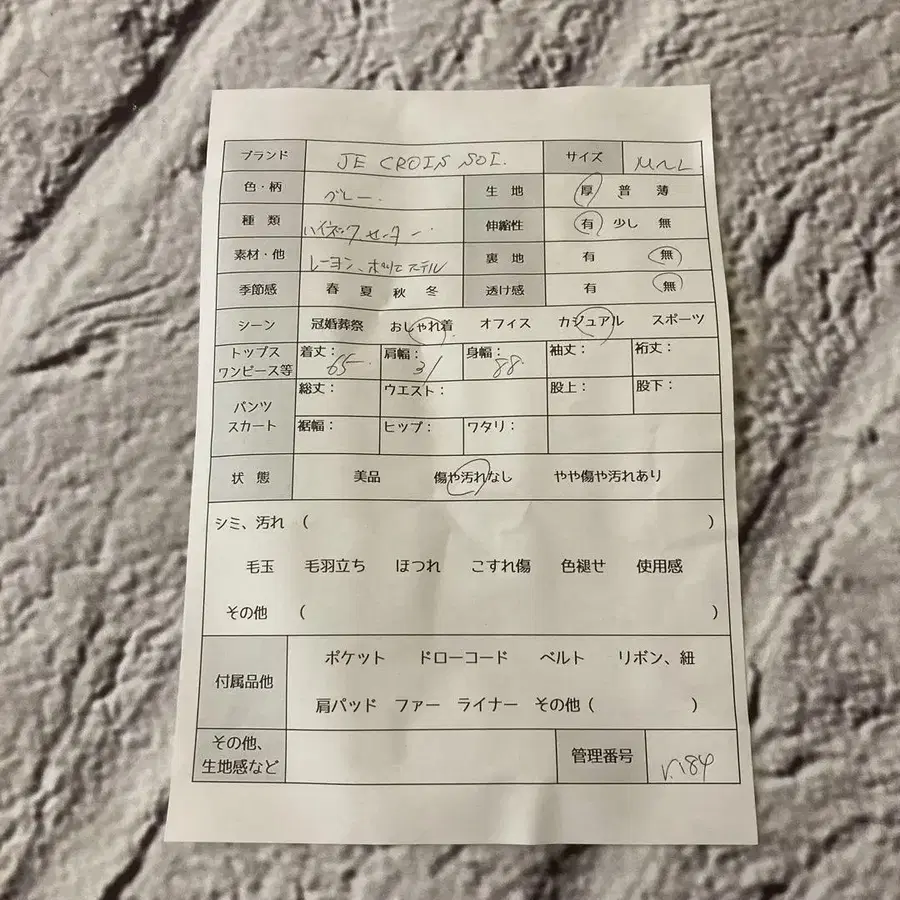 ブランド JE CROIS SOI. サイズ M〜L.
色・柄 グレー. 生 地 厚 普 薄
種 類 ハイネックセーター. 伸縮性 有 少し 無
素材・他 レーヨン、ポリエステル 裏 地 有 無
季節感 春 夏 秋 冬 透け感 有 無
シーン 冠婚葬祭 おしゃれ着 オフィス カジュアル スポーツ
トップス ワンピース等 着丈: 65. 肩幅: 31 身幅: 88. 袖丈: 裄丈:
パンツ スカート 総丈: ウエスト: 股上: 股下:
裾幅: ヒップ: ワタリ:
状 態 美品 傷や汚れなし やや傷や汚れあり
シミ、汚れ ( )
毛玉 毛羽立ち ほつれ こすれ傷 色褪せ 使用感
その他 ( )
付属品他 ポケット ドローコード ベルト リボン、紐
肩パッド ファー ライナー その他 ( )
その他、
生地感など 管理番号 184